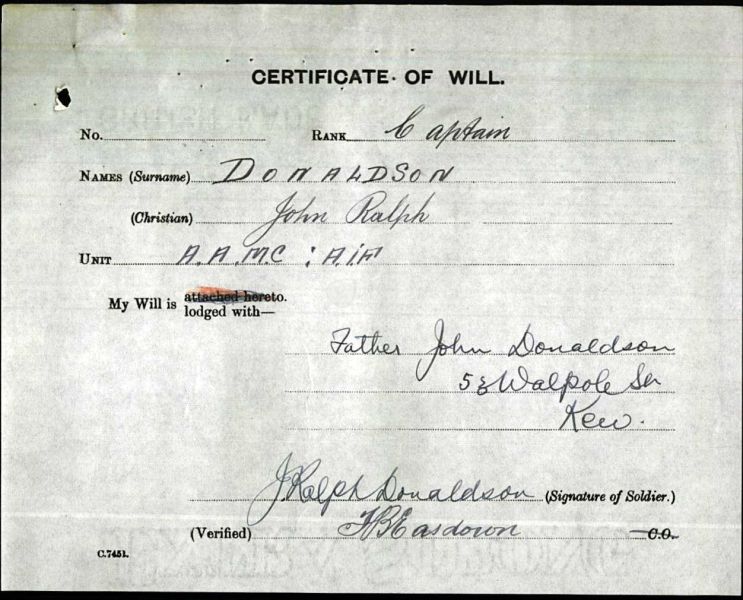 CERTIFICATE OF WILL.
No. RANK Captain
NAMES (Surname) DONALDSON
(Christian) John Ralph
UNIT A.A.M.C : A.I.F
My Will is attached hereto.
lodged with—
Father John Donaldson
Walpole St
Kew.
J. Ralph Donaldson (Signature of Soldier.)
(Verified) Easdown C.O.
C.7451.